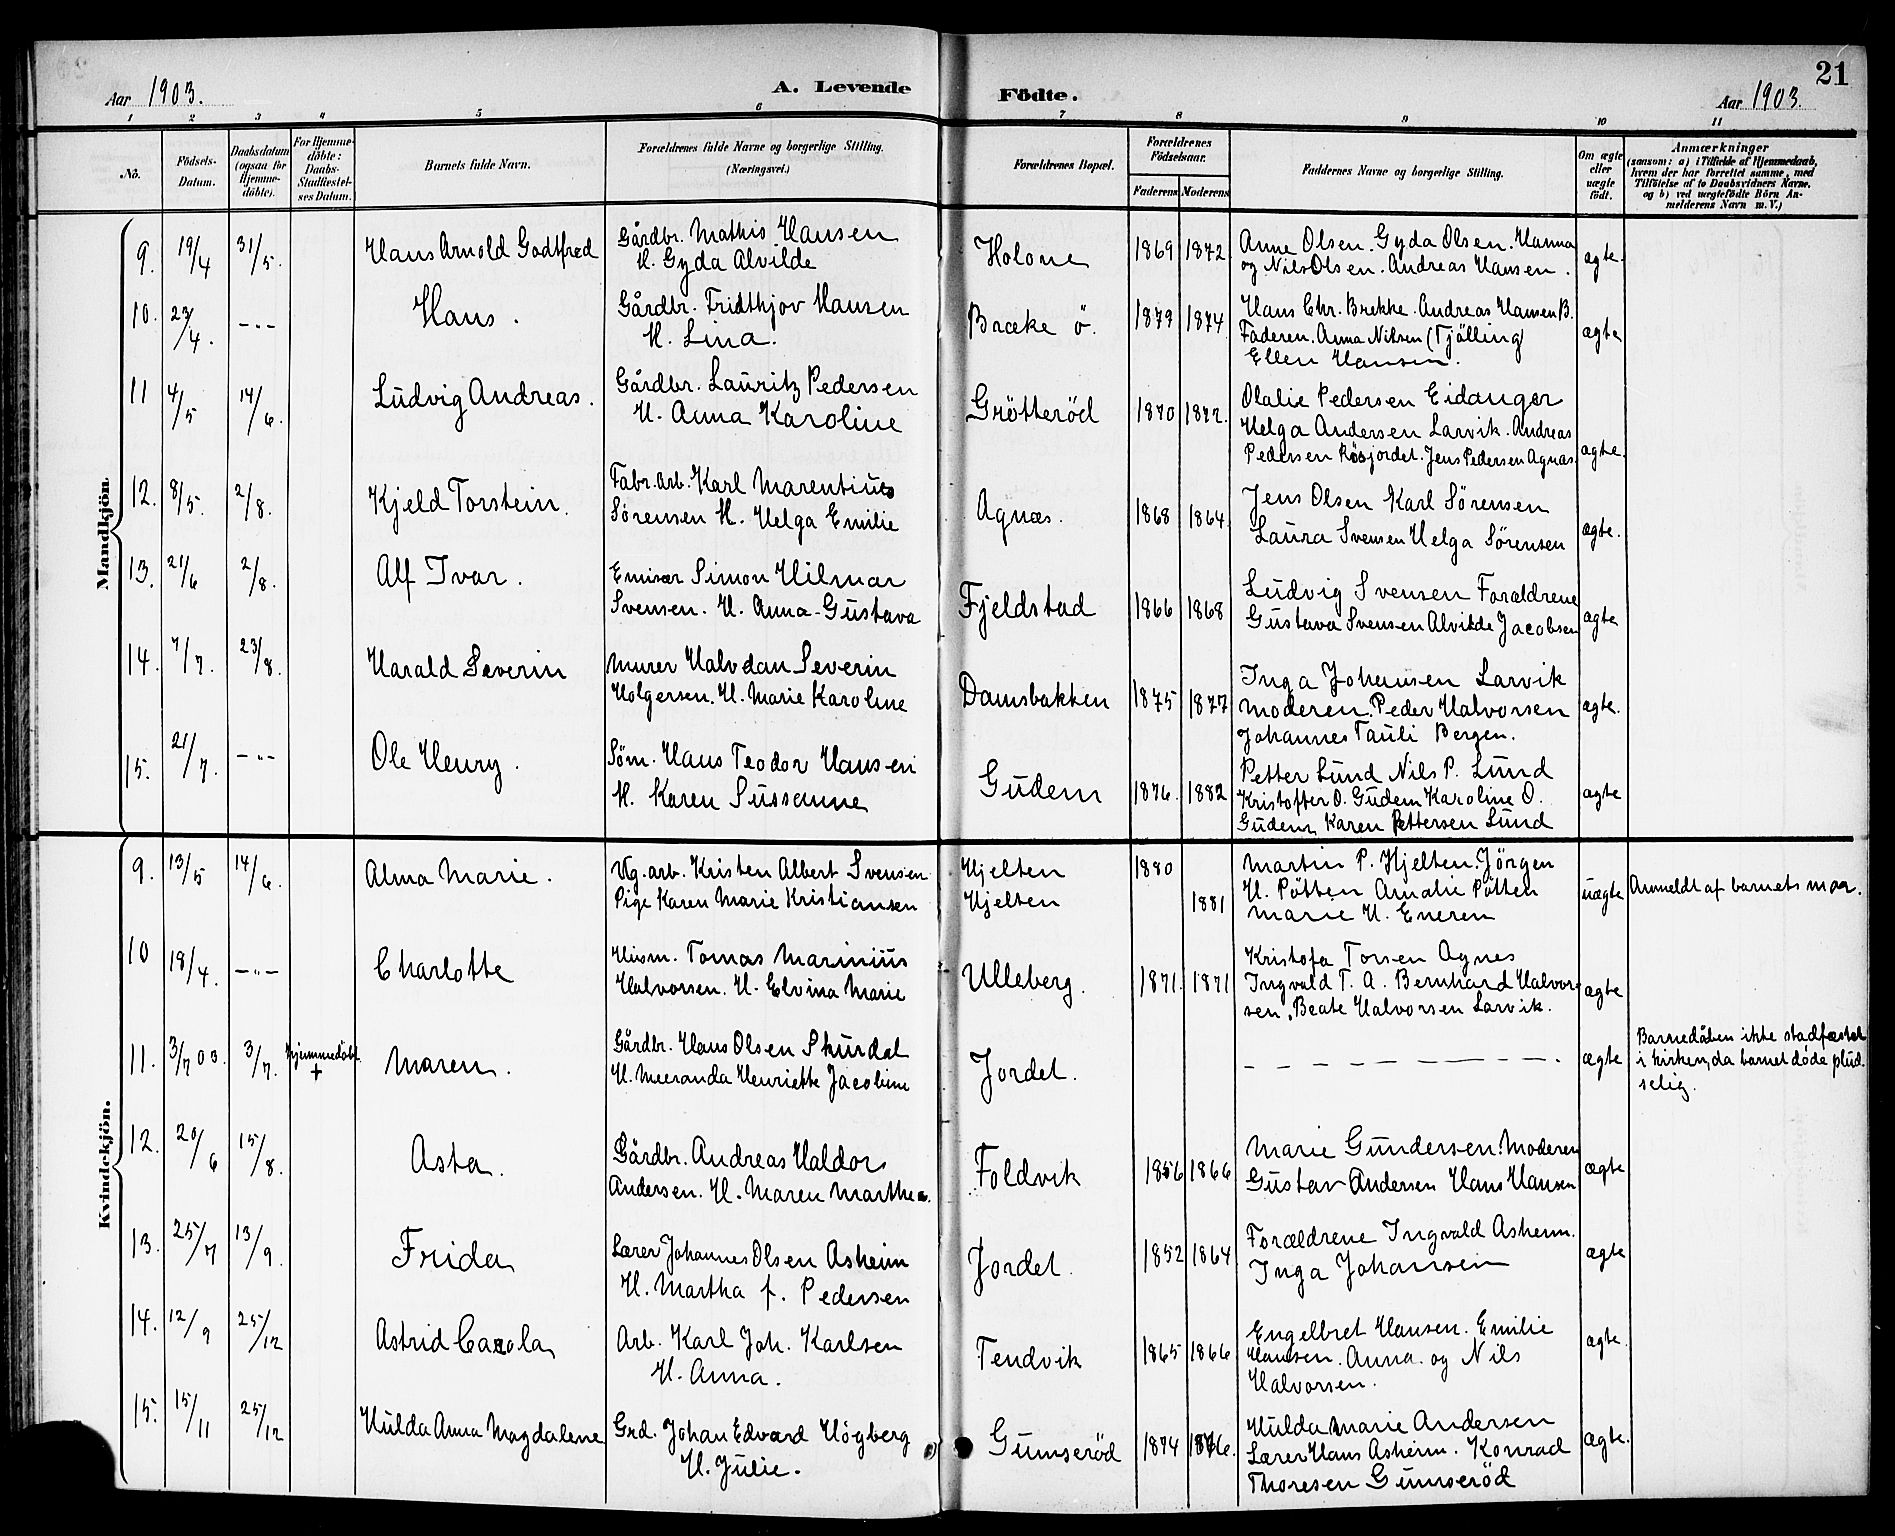 21
Aar 1903. A. Levende Födte. Aar 1903.
1 2 3 4 5 6 7 8 9 10 11
No.
Födsels-
Datum.
Daabsdatum
(ogsaa for
Hjemme-
döbte).
For Hjemme-
döbte:
Daabs-
Stadfæstel-
ses Datum.
Barnets fulde Navn.
Forældrenes fulde Navne og borgerlige Stilling.
(Næringsvei.)
Forældrenes Bopæl.
Forældrenes
Födselsaar.
Faderens Moderens
Faddernes Navne og borgerlige Stilling.
Om ægte
eller
uægte
født.
Anmærkninger
(saasom: a) i Tilfælde af Hjemmedaab,
hvem der har forrettet samme, med
Tilföielse af to Daabsvidners Navne,
og b) ved uægtefödte Börn An-
melderens Navn m. V.)
Mandkjön.
9. 19/4 31/5. Hans Arnold Godtfred
Gårdbr. Mathis Hansen
H. Gyda Alvilde
Holone 1869 1872
Anne Olsen. Gyda Olsen. Hanna
og Nils Olsen. Andreas Hansen.
ægte.
10. 23/4. -"- Hans.
Gårdbr. Fridthjov Hansen
H. Lina.
Bræke ö. 1879 1874
Hans Chr. Brekke. Andreas Hansen B.
Faderen. Anna Nilsen (Tjölling)
Ellen Hansen.
ægte
11 4/5 14/6. Ludvig Andreas.
Gårdbr. Lauritz Pedersen
H. Anna Karoline
Grötteröd 1870 1872.
Olalie Pedersen Eidanger
Helga Andersen Larvik. Andreas
Pedersen Røsjordet. Jens Pedersen Agnæs.
ægte.
12. 8/5. 2/8. Kjeld Torstein.
Fabr. arb. Karl Marentius
Sörensen H. Helga Emilie
Agnæs. 1868 1864.
Jens Olsen Karl Sørensen
Laura Svensen Helga Sørensen
ægte.
13. 21/6 2/8. Alf Ivar.
Emisær Simon Hilmar
Svensen. H. Anna-Gustava
Fjeldstad 1866 1868
Ludvig Svensen Forældrene
Gustava Svensen Alvilde Jacobsen
ægte
14. 7/7. 23/8. Harald Severin
Murer Halvdan Severin
Holgersen. H. Marie Karoline
Damsbakken 1875 1877
Inga Johansen Larvik
Moderen. Peder Halvorsen
Johannes Tauli Bergen.
ægte.
15. 21/7. -"- Ole Henry.
Søm. Hans Teodor Hansen
H. Karen Sussanne
Gudem 1876. 1882
Petter Lund Nils P. Lund
Kristoffer O. Gudem Karoline O.
Gudem Karen Pettersen Lund
ægte
Kvindekjön.
9. 13/5 14/6. Alma Marie.
Vg. arb. Kristen Albert Svensen
Pige Karen Marie Kristiansen
Hjelten 1880
Hjelten 1881
Martin P. Hjelten. Jörgen
H. Pötten Amalie Pötten
Marie H. Eneren
uægte Anmeldt af barnets mor.
10 18/4. -"- Charlotte
Husm. Tomas Marinius
Halvorsen. H. Elvina Marie
Ulleberg. 1871. 1871
Kristofa Torsen Agnes
Ingvald T. A. Bernhard Halvor-
sen. Beate Halvorsen Larvik.
ægte
11. 3/7 03. 3/7. Hjemmedöbt + Maren.
Gårdbr. Hans Olsen Skurdal
H. Meeranda Henriette Jacobine
Jordet.
- - - - - - - -.
ægte
Barnedåben ikke stadfæstet
i kirken, da barnet døde plud-
selig.
12. 20/6 15/8. Asta.
Gårdbr. Andreas Haldor
Andersen. H. Maren Marthea.
Foldvik 1856 1866
Marie Gundersen. Moderen
Gustav Andersen Hans Hansen
ægte
13. 25/7 13/9. Frida
Lærer Johannes Olsen Asheim
H. Martha f. Pedersen
Jordet. 1852 1864
Forældrene Ingvald Asheim.
Inga Johansen
ægte
14. 12/9 25/12 Astrid Carola
Arb. Karl Joh. Karlsen
H. Anna.
Tendvik 1865 1866
Engelbret Hansen. Emilie
Hansen. Anna. og Nils
Halvorsen.
ægte.
15. 15/11 25/12 Hulda Anna Magdalene
Grd. Johan Edvard Högberg
H. Julie.
Gumseröd 1874 1876.
Hulda Marie Andersen
Lærer Hans Asheim. Konrad
Thoresen Gumseröd
ægte.